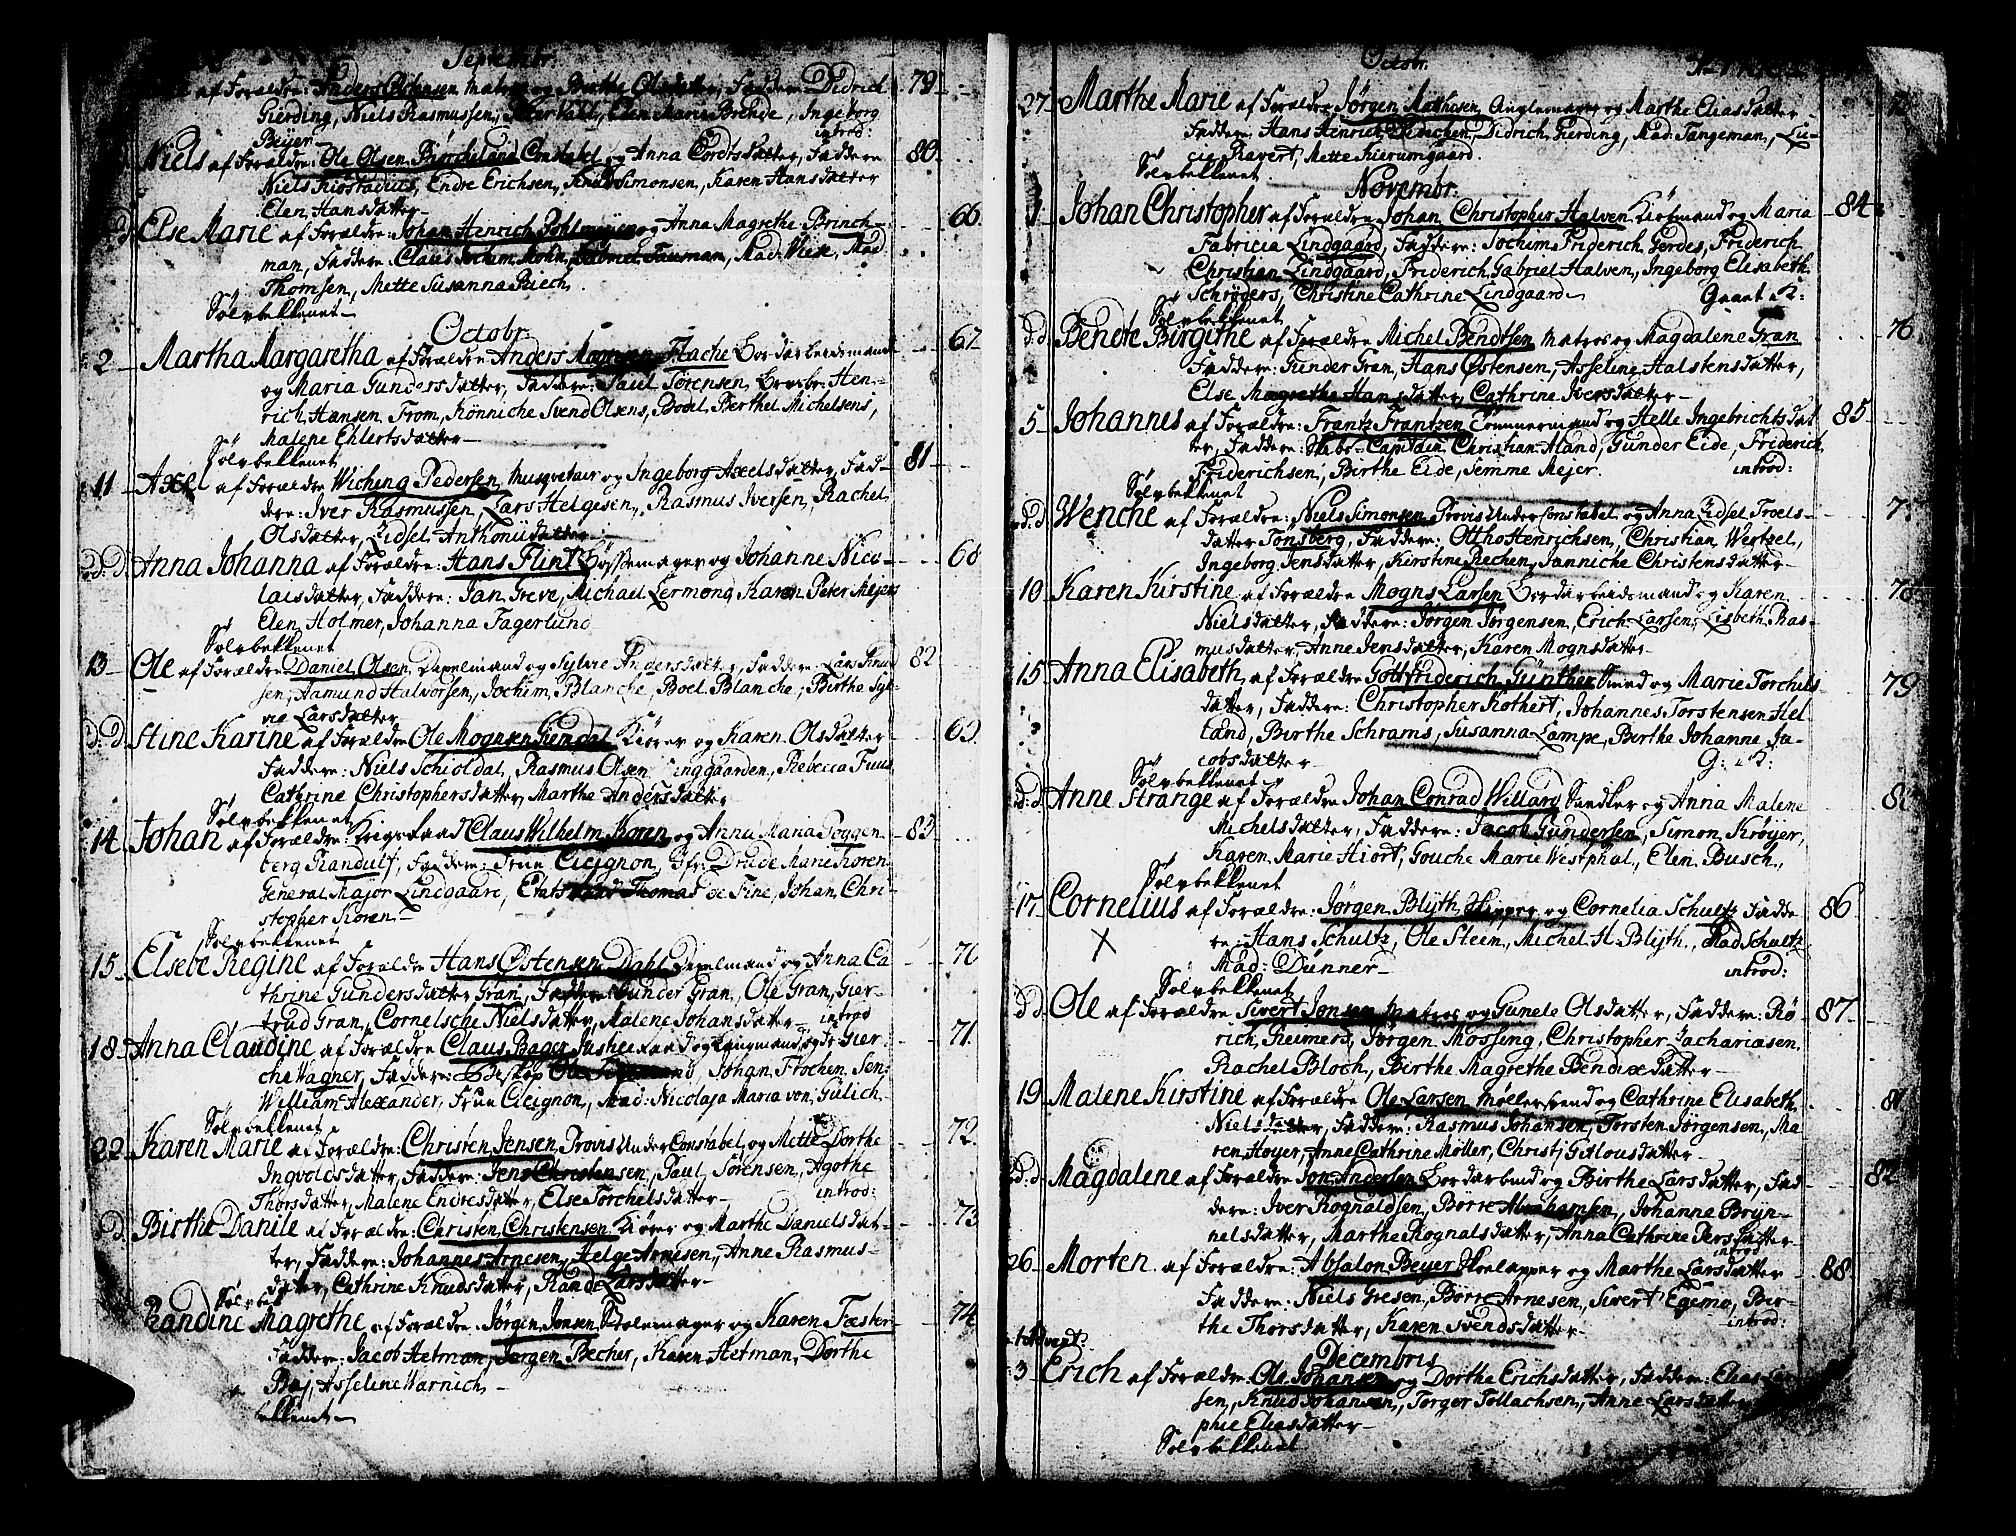 Septembr.
af Forældre: Anders Petersen Matros og Birthe Olsdatter, Faddere: Didrich 79
Gierding, Niels Rasmussen, Peter Vahl, Elen Marie Brende, Ingeborg
Beyer introd:
Niels af Forældre: Ole Olsen Biørcheland Constabel og Anna Cordtsdatter, Faddere 80
Niels Kiøstadius, Endre Erichsen, Knud Simonsen, Karen Hansdatter
Elen Hansdatter
d. Else Marie af Forældre: Johan Henrich Pohlmeyer og Anna Magrethe Brinch- 66
man, Faddere: Claus Jochim Mohn, Gabriel Tausman, Mad. Wiese, Mad.
Thomsen, Mette Susanna Riech
Sølvbekkenet
Octobr.
2 Martha Margaretha af Forældre Anders Mognsen Flache Bordarbeidsmand 67
og Maria Gundersdatter, Faddere: Paul Sørensen, Hen-
rich Hansen From, Könniche Svend Olsens, Bodel Berthel Michelsens,
Malene Ehlertsdatter
Sølvbekkenet
11 Axel af Forældre Wiching Pedersen Musqvetair og Ingeborg Axelsdatter, Fad- 81
dere: Iver Rasmussen, Lars Helgesen, Rasmus Iversen, Rachel
Olsdatter, Lidsel Anthoniidatter
d. d. Anna Johanna af Forældre: Hans Flint Bøssemager og Johanne Nico- 68
laisdatter, Faddere: Jan Greve, Michael Lermong, Karen Peter Meyers
Elen Holmer, Johanna Fagerlund
Sølvbekkenet
13 Ole af Forældre Daniel Olsen Dræelmand og Sylvie Andersdatter, Faddere: Lars Knud 82
sen, Aamund Halvorsen, Jochim Blanche, Boel Blanche, Birthe Syl-
vie Larsdatter
d. d. Stine Karine af Forældre Ole Mognsen Kiører og Karen Olsdatter 69
Faddere: Niels Schioldal, Rasmus Olsen Linggaarden, Rebecca Fuus
Cathrine Christophersdatter, Marthe Andersdatter
Sølvbekkenet
14 Johan af Forældre: Krigsraad Claus Wilhelm Koren og Anna Maria Poggen 83
berg Randulf, Faddere: Frue Cicignon, Jfr: Drude Marie Koren
General Major Lindgaard, Etatsraad Thomas de Fine, Johan Chri-
stopher Koren
Sølvbekkenet
15 Elsebe Regine af Forældre Hans Østensen Dahl Dræelmand og Anna Ca 70
thrine Gundersdatter Gran, Faddere: Gunder Gran, Ole Gran, Gier-
trud Gran, Cornelsche Nielsdatter, Malene Johansdatter introd
18 Anna Claudine af Forældre Claus Bager Justice Raad og Laugmand, og Fr Gier- 71
che Wagner, Faddere: Bischop Ole, Johan Frochen, Sen:
William Alexander, Frue Cicignon, Mad: Nicolaja Maria von Gülich
Sølvbekkenet
22 Karen Marie af Forældre: Christen Jensen Provis UnderConstabel og Mette Dorthe 72
Ingvoldsdatter, Faddere: Jens Christensen, Paul Sørensen, Agothe
Thorsdatter, Malene Endresdatter, Else Torchelsdatter introd:
d. Birthe Danile af Forældre: Christen Christensen Kiører og Marthe Danielsdat- 73
ter, Faddere: Johannes Arnesen, Helge Arnesen, Anne Rasmus-
datter, Cathrine Knudsdatter, Rande Larsdatter
Sølvbek
Randine Magrethe af Forældre: Jørgen Jonsen Stolemager og Karen Tæster 74
Faddere: Jacob Hetman, Jørgen Becher, Karen Hetman, Dorthe
Baj, Asselene Warnich
bekkenet
Octobr.
27 Marthe Marie af Forældre Jørgen Mathisen Anglemager og Marthe Eliasdatter
Faddere: Hans Henrich, Didrich Gierding, Mad. Tangeman, Lu-
cie Ravert, Mette Kierumgaard.
Sølvbekkenet
Novembr.
1 Johan Christopher af Forældre Johan Christopher Halven Kiøbmand og Maria 84
Fabricia Lindgaard, Faddere: Jochim Friderich Gerdes, Friderich
Christian Lindgaard, Friderich Gabriel Halven, Ingeborg Elisabeth
Schrøders, Christine Cathrine Lindgaard Gaaet i K:
Sølvbekkenet
d. d. Bendte Birgithe af Forældre Michel Bendtsen Matros og Magdalene Gran 76
Faddere: Gunder Gran, Hans Østensen, Asseline Halstensdatter,
Else Magrethe Hansdatter, Cathrine Iversdatter
5 Johannes af Forældre: Frantz Frantzen Tømmermand og Helle Ingebrichtsdat 85
ter, Faddere: Stabs-Capitain Christian Aland, Gunder Eide, Friderich
Friderichsen, Birthe Eide, Semme Mejer. introd:
Sølvbekkenet
d. d. Wenche af Forældre: Niels Simonsen Provis Under Constabel og Anna Lidsel Troels- 7
datter Tönsberg, Faddere: Otho Henrichsen, Christian Wertzel,
Ingeborg Jensdatter, Kirstine Rechen, Janniche Christensdatter
10 Karen Kirstine af Forældre Mogns Larsen Bordarbeidsmand og Karen 78
Nielsdatter, Faddere: Jørgen Jørgensen, Erich Larsen, Lisbeth Ras-
musdatter, Anne Jensdatter, Karen Mognsdatter
15 Anna Elisabeth af Forældre Gottfriderich Günther Smed og Marie Torchels 79
datter, Faddere: Christopher Kothert, Johannes Torstensen Hel-
land, Birthe Schrams, Susanna Lampe, Birthe Johanne Ja-
cobsdatter G: i K:
Sølvbekkenet
d. d. Anne Strange af Forældre Johan Conrad Willard Handler og Anna Malene 80
Michelsdatter, Faddere: Jacob Gundersen, Simon Krøyer,
Karen Marie Hiort, Gouche Marie Westphal, Elen Busch,
Sølvbekkenet
17 Cornelius af Forældre: Jørgen Blyth Skipper og Cornelia Schultz Fadde 86
X re: Hans Schultz, Ole Steen, Michel H. Blyth, Mad Schultz
Mad: Dünner introd:
Sølvbekkenet
d. d. Ole af Forældre Sivert Jonsen Matros og Gunele Olsdatter, Faddere: Rø 87
rich Reimers, Jørgen Mossing, Christopher Zachariasen
Rachel Bloch, Birthe Magrethe Bendixdatter
19 Malene Kirstine af Forældre Ole Larsen Møllersvend og Cathrine Elisabeth 81
Nielsdatter, Faddere: Rasmus Johansen, Torsten Jørgensen, Ma
ren Hoyer, Anne Cathrine Möller, Christj Gitlousdatter
d. d. Magdalene af Forældre Jon Andersen Bordarbmd og Birthe Larsdatter, Fad- 82
dere: Iver Rognaldsen, Børre Abrahamsen, Johanne Bryn-
nelsdatter, Marthe Rognalsdatter, Anna Cathrine Persdatter
introd
26 Morten af Forældre: Absalon Beyer Skolapper og Marthe Larsdatter 88
Faddere: Niels Gresen, Børre Arnesen, Sivert Egemo, Bir-
the Thorsdatter, Karen Svendsdatter introd:
1 Advent:
Decembris
3 Erich af Forældre: Ole Johansen og Dorthe Erichsdatter, Faddere: Elias
sen, Knud Johansen, Torger Tollachsen, Anne Larsdatter
phie Eliasdatter
Sølvbekkenet